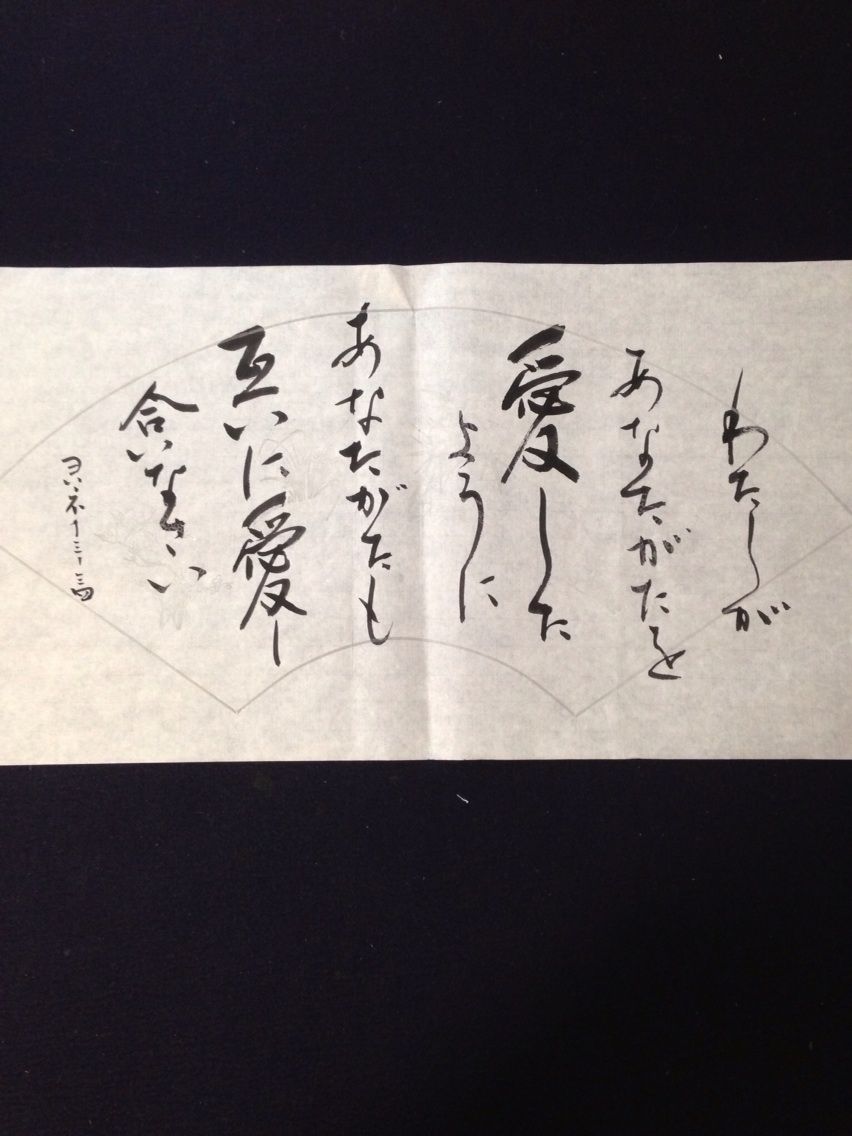 わたしが
あなたがたを
愛した
ように
あなたがたも
互いに愛し
合いなさい
ヨハネ十三・三四